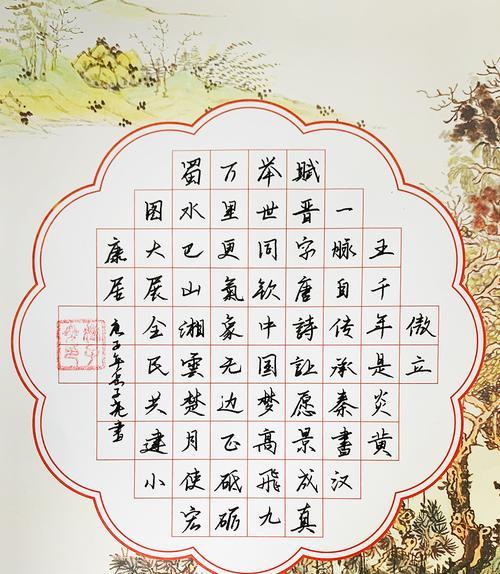 傲立
五千年是炎黄
一脉自传承秦書汉
赋晋字唐詩愿景成真
举世同钦中国梦高飛九
万里更氣象无边正砥砺
蜀水巴山湘雲楚月使宏
图大展全民共建小
康居
庚子年書